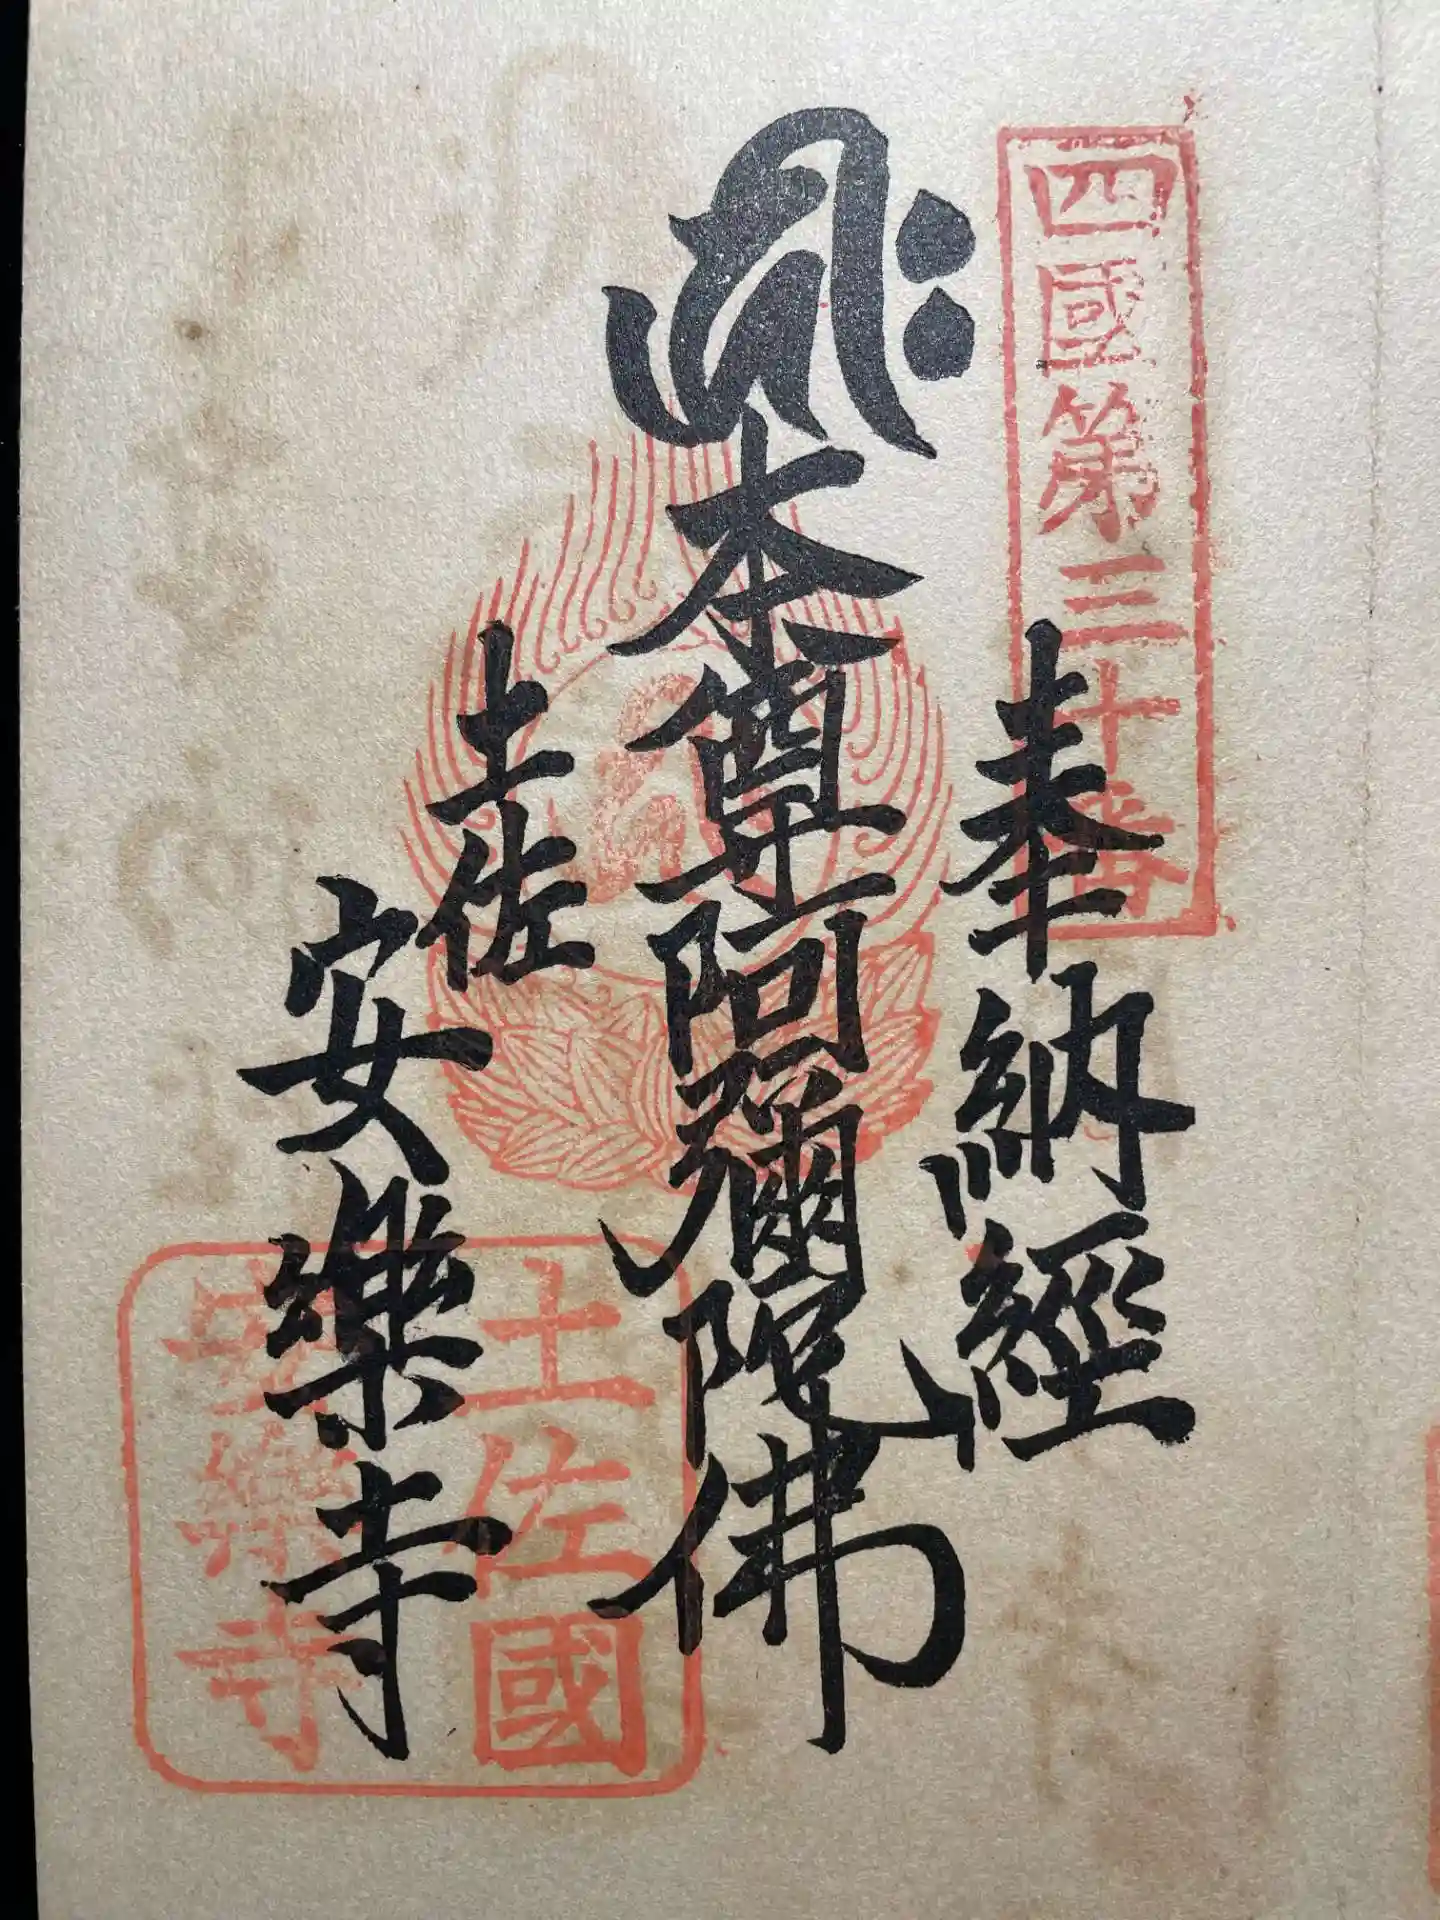 四國第三十番
奉納經
𑖮𑖿𑖨𑖱𑖾
本尊阿彌陀佛
土佐
安樂寺
土佐國
安樂寺